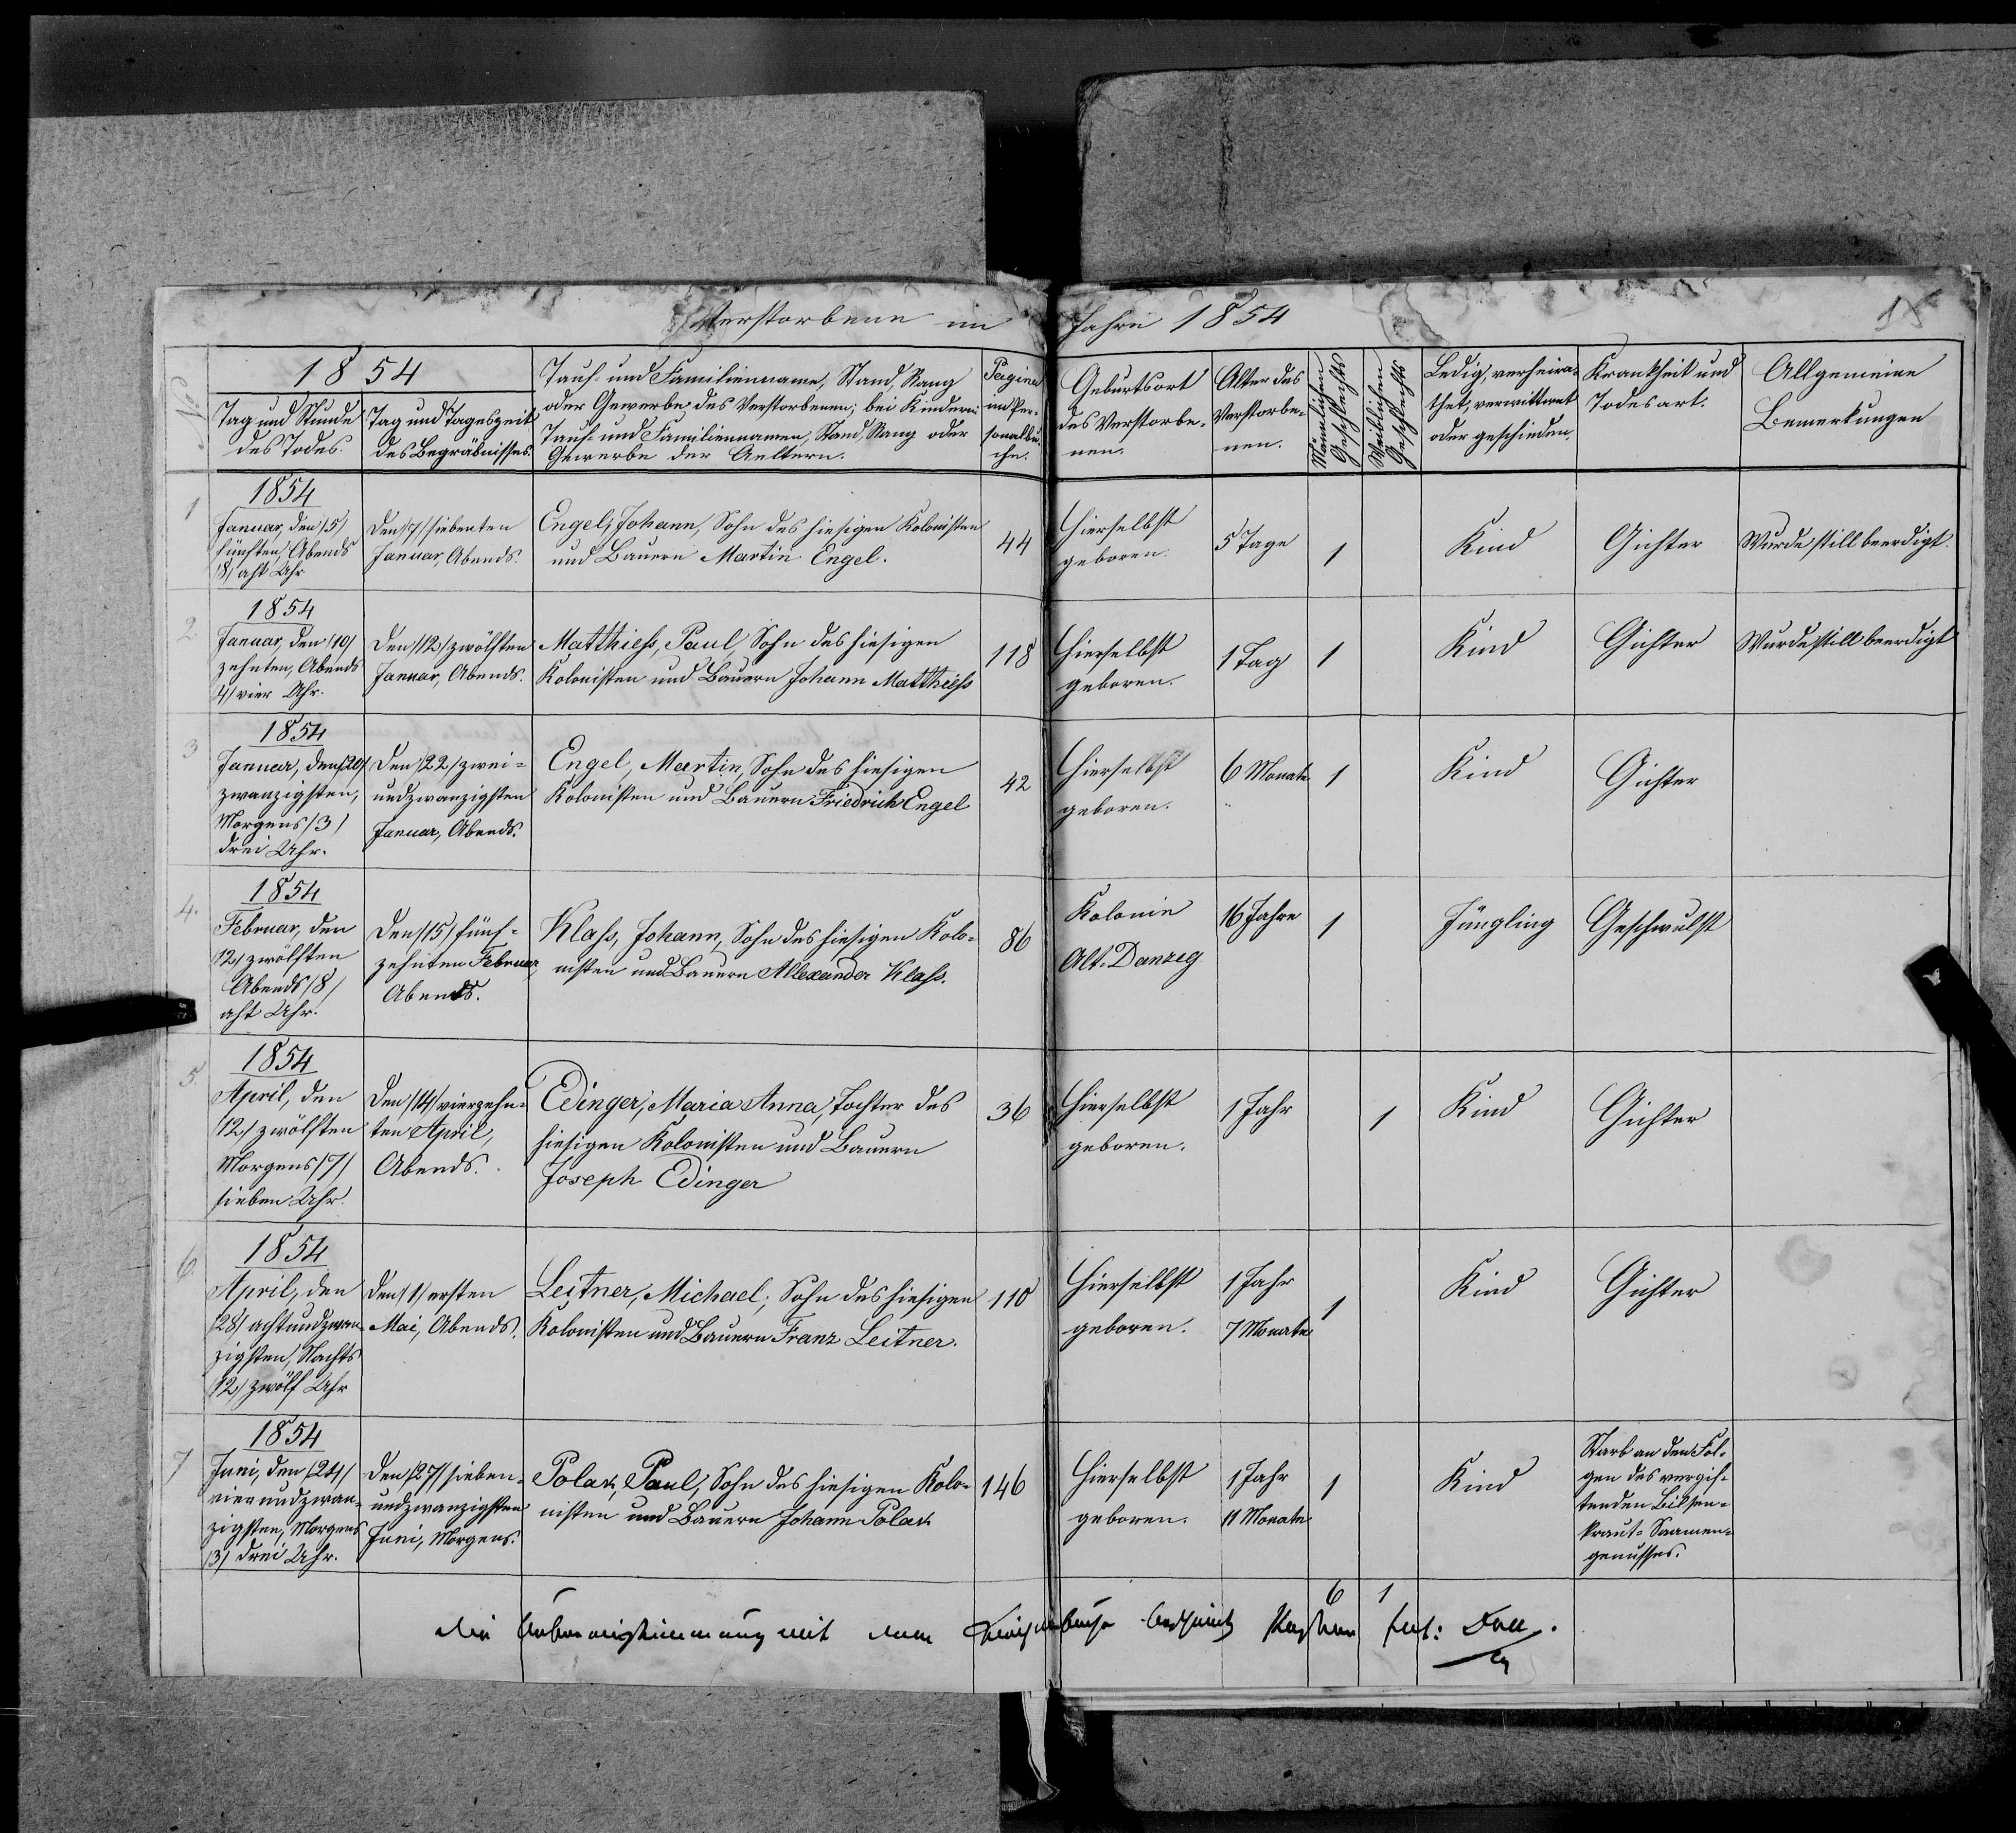 Verstorbene im Jahre 1854
15
No
1854
Tag und Stunde
des Todes.
Tag und Tageszeit
des Begräbnisses.
Tauf- und Familienname, Stand, Rang
oder Gewerbe des Verstorbenen; bei Kindern:
Tauf- und Familiennamen, Stand, Rang oder
Gewerbe der Aeltern.
Pagina
im Per-
sonalbu-
che.
Geburtsort
des Verstorbe-
nen.
Alter des
Verstorbe-
nen.
Männlichen
Geschlechts
Weiblichen
Geschlechts
Ledig, verheira-
thet, verwittwet
oder geschieden.
Krankheit und
Todesart.
Allgemeine
Bemerkungen
1
1854
Januar, den /5/
fünften, Abends
/8/ acht Uhr
Den /7/ siebenten
Januar, Abends.
Engel, Johann, Sohn des hiesigen Kolonisten
und Bauern Martin Engel.
44
Hierselbst
geboren.
5 Tage
1
Kind
Gichter
Wurde still beerdigt.
2.
1854
Januar, den /10/
zehnten, Abends
/4/ vier Uhr.
Den /12/ zwölften
Januar, Abends.
Matthiess, Paul, Sohn des hiesigen
Kolonisten und Bauern Johann Matthiess
118
Hierselbst
geboren.
1 Tag
1
Kind
Gichter
Wurde still beerdigt
3
1854
Januar, den /20/
zwanzigsten,
Morgens /3/
drei Uhr.
Den /22/ zwei-
undzwanzigsten
Januar, Abends.
Engel, Martin, Sohn des hiesigen
Kolonisten und Bauern Friedrich Engel
42
Hierselbst
geboren.
6 Monate
1
Kind
Gichter
4.
1854
Februar, den
/12/ zwölften
Abends /8/
acht Uhr.
Den /15/ fünf-
zehnten Februar,
Abends.
Klass, Johann, Sohn des hiesigen Kolo-
nisten und Bauern Allexander Klass.
86
Kolonie
Alt-Danzig
16 Jahre
1
Jüngling
Geschwulst
5
1854
April, den
/12/ zwölften
Morgens /7/
sieben Uhr.
Den /14/ vierzehn-
ten April,
Abends.
Edinger, Maria Anna, Tochter des
hiesigen Kolonisten und Bauern
Joseph Edinger
36
Hierselbst
geboren.
1 Jahr
1
Kind
Gichter
6.
1854
April, den
/28/ achtundzwan-
zigsten, Nachts
/12/ zwölf Uhr
Den /1/ ersten
Mai, Abends.
Leitner, Michael, Sohn des hiesigen
Kolonisten und Bauern Franz Leitner.
110
Hierselbst
geboren.
1 Jahr
7 Monate
1
Kind
Gichter
7
1854
Juni, den /24/
vierundzwan-
zigsten, Morgens
/3/ drei Uhr.
Den /27/ sieben-
undzwanzigsten
Juni, Morgens.
Polak, Paul, Sohn des hiesigen Kolo-
nisten und Bauern Johann Polak
146
Hierselbst
geboren.
1 Jahr
11 Monate
1
Kind
Starb an den Fol-
gen des vergif-
tenden Bilsen-
kraut-Saamen-
genusses.
6 1
die Uebereinstimmung mit dem Kirchenbuche bescheinigt Pastor